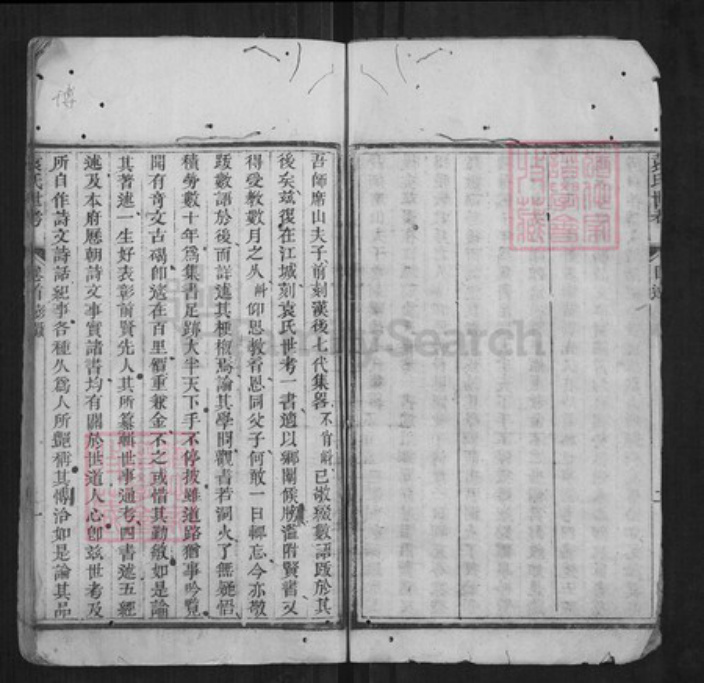 袁氏世考
吾師席山夫子前刻漢後七代集畧不肖斛已敬綴數語跋於其
後矣兹復在江城刻袁氏世考一書適以鄉闈候牓濫附賢書又
得受教數月之久斛仰思教育恩同父子何敢一日輒忘今亦敬
跋數語於後而詳述其梗槪焉論其學問觀書若洞火了無疑悟
積勞數十年爲集書足跡大半天下手不停披雖道路猶事吟覽
聞有奇文古碣卽遠在百里價重兼金不之或惜其勤敏如是論
其著述一生好表彰前賢先人其所纂輯世事通考四書述五經
述及本府歷朝詩文事實諸書均有關於世道人心卽兹世考及
所自作詩文詩話紀事各種久爲人所艷稱其博洽如是論其品
袁氏世考
卷首
一
博
FamilySearch